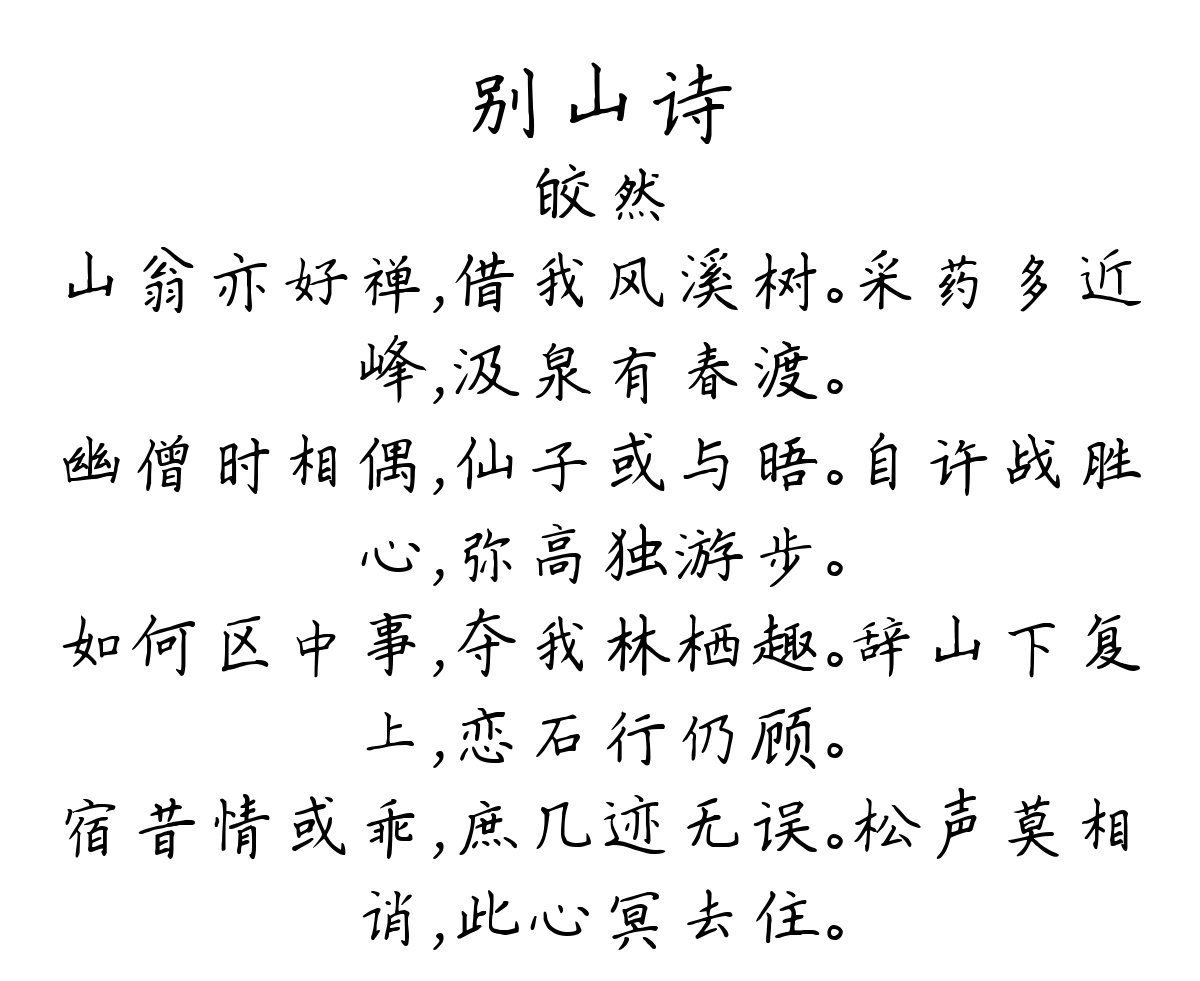 别山诗
皎然
山翁亦好禅,借我风溪树。采药多近
峰,汲泉有春渡。
幽僧时相偶,仙子或与晤。自许战胜
心,弥高独游步。
如何区中事,夺我林栖趣。辞山下复
上,恋石行仍顾。
宿昔情或乖,庶几迹无误。松声莫相
诮,此心冥去住。